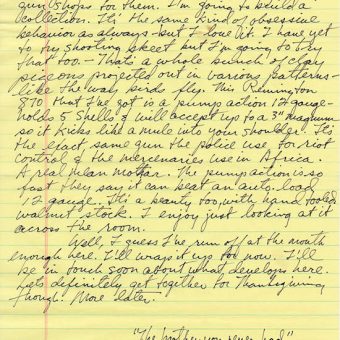 gun shops for them. I'm going to build a
collection. It's the same kind of obsessive
behavior as always - but I love it. I have yet
to try shooting skeet but I'm going to try
that too. - That's a whole bunch of clay
pigeons projected out in various patterns -
like the way birds fly. This Remington
870 that I've got is a pump action 12 gauge -
holds 5 shells & will accept up to a 3" magnum
so it kicks like a mule into your shoulder. It's
the exact, same gun the police use for riot
control & the mercenaries use in Africa.
A real mean mother. The pump action is so
fast they say it can beat an auto load
12 gauge. It's a beauty too, with hand tooled
walnut stock. I enjoy just looking at it
across the room.
Well, I guess I've run off at the mouth
enough here. I'll wrap it up for now. I'll
be in touch soon about what develops here.
Lets definitely get together for Thanksgiving
though! More later.
"The brother you never had"